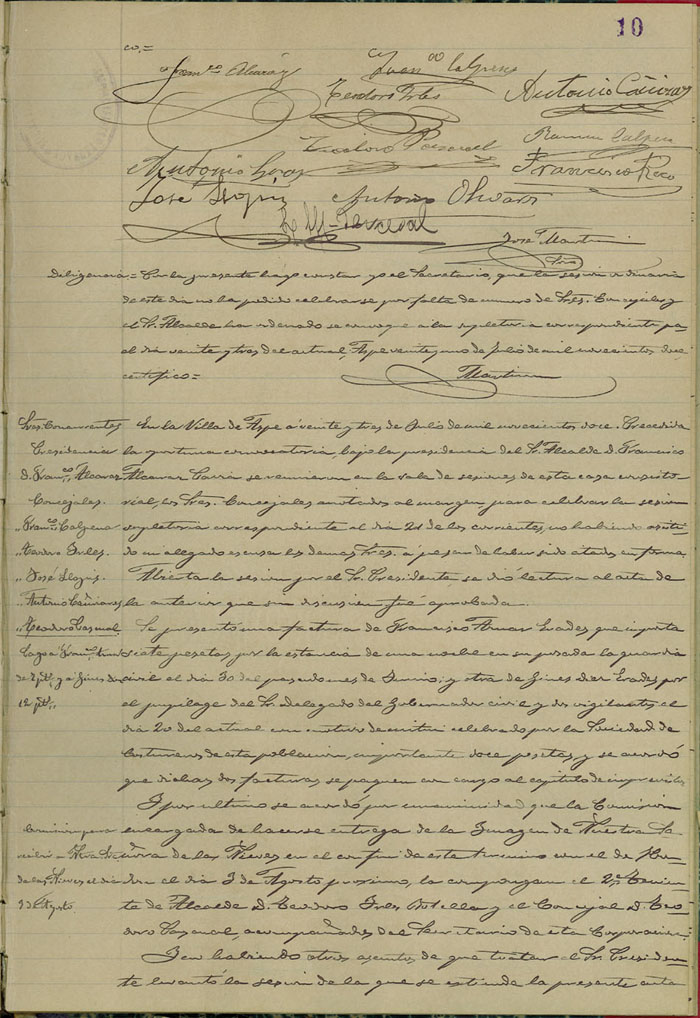 10
co,=
Fran.co Alcaraz
Juan Calpena
Teodoro Irles
Antonio Cañizares
Teodoro Pascual
Ramon Calpena
Antonio
Francisco Rico
José Llopis
Antonio Olivares
José Martinez
Srio
Diligencia = Con la presente hago constar yo el Secretario, que la sesion ordinaria
de este dia no ha podido celebrarse por falta de numero de Sres. Concejales y
el Sr. Alcalde ha ordenado se convoque a la supletoria correspondiente pa
el dia veinte y tres del actual, Aspe veinte y uno de Julio de mil novecientos doce
certifico =
Martinez
Sres. Concurrentes
Presidencia
D. Franco. Alcaraz
Concejales
" Franco. Calpena
" Teodoro Irles
" José Llopis
" Antonio Cañizares
" Teodoro Pascual
En la Villa de Aspe a veinte y tres de Julio de mil novecientos doce. Precedida
la oportuna convocatoria, bajo la presidencia del Sr. Alcalde D. Francisco
Alcaraz se reunieron en la sala de sesiones de esta casa consisto-
rial, los Sres. Concejales anotados al margen para celebrar la sesion
supletoria correspondiente al dia 21 de los corrientes, no habiendo asisti-
do ni alegado escusa los demas Sres. a pesar de haber sido citados en forma.
Abierta la sesion por el Sr. Presidente se dió lectura al acta de
la anterior que sin discusion fué aprobada.
Pago a Fran.co
de 7 pts. y a Gines
12 pts.
Se presentó una factura de Francisco que importa
siete pesetas por la estancia de una noche en su posada la guardia
civil el dia 30 del pasado mes de Junio; y otra de Gines por
el pupilage del Sr. Delegado del Gobernador civil y dos vigilantes el
dia 20 del actual con motivo de mitin celebrado por la Sociedad de
Costureros de esta poblacion, importante doce pesetas, y se acordó
que dichas dos facturas se paguen con cargo al capitulo de imprevistos
Comision para
recibir a Ntra. Sra.
de las Nieves el dia
3 de Agosto
Y por ultimo se acordó por unanimidad que la Comision
encargada de hacerse entrega de la Imagen de Nuestra Se-
ñora de las Nieves en el confin de este termino con el de Hon-
don el dia 3 de Agosto proximo, la compongan el 2º Tenien-
te de Alcalde D. Teodoro Irles Botella y el Concejal D. Teo-
doro Pascual, acompañados del Secretario de esta Corporacion.
Y no habiendo otros asuntos de que tratar el Sr. Presiden-
te levantó la sesion de la que se estiende la presente acta